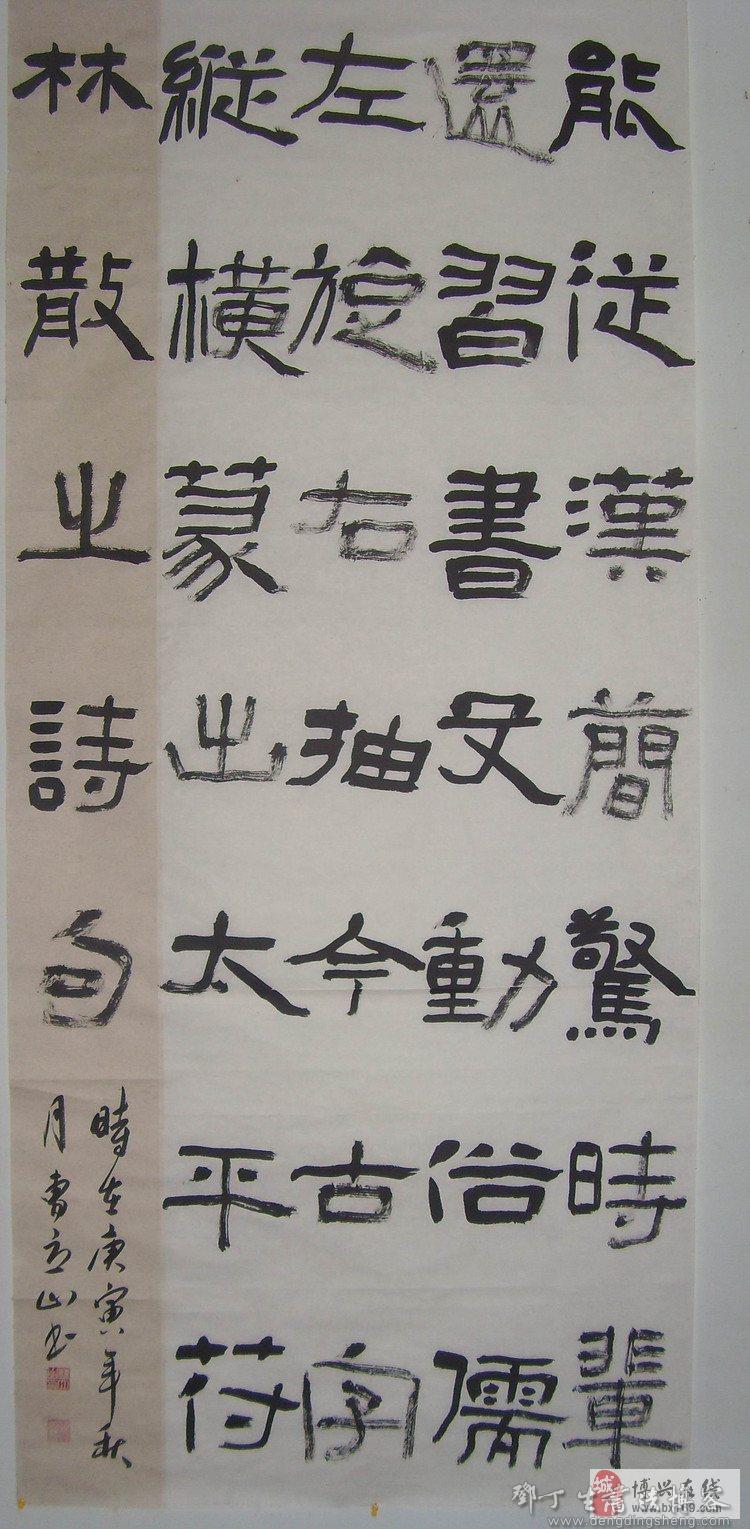 能從漢簡驚時輩
還習書殳動俗儒
左旋右抽今古字
縱橫篆出太平符
林散之詩句
時在庚寅年秋
月曹立山书
博兴在线
鄧丁生書法博客
www.dengdingsheng.com